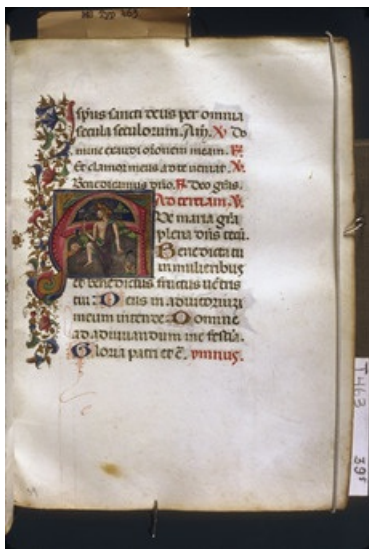 spūs sancti deus per omnia
secula seculorum. Am̄. ℣ Do
mine exaudi or̄onem meam. ℟.
Et clamor meus ad te veniat. ℣.
Benedicamus dn̄o. ℟. deo gr̄as.
Ad tertiam. ℣.
AVe maria gr̄a
plena dn̄s tecū.
Benedicta tu
in mulieribus
et benedictus fructus uētris
tui: Deus in adiutoriuȝ
meum intende: Domine
ad adiuvandum me festīa.
Gloria patri et c̄. ymnus.
T 463 39r